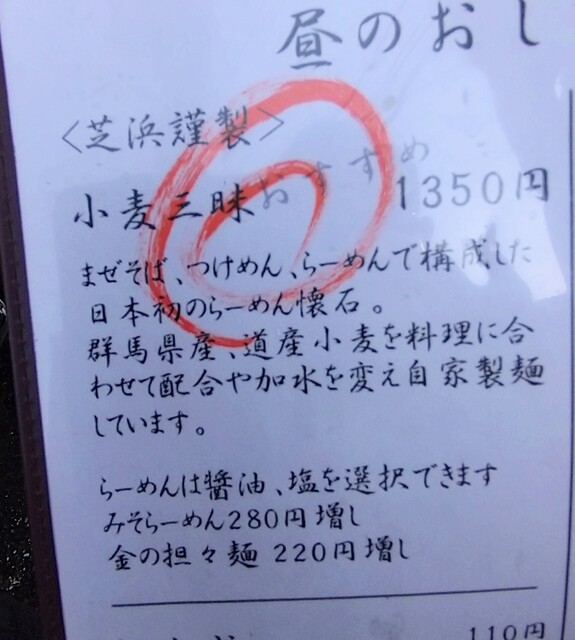 昼のおし
〈芝浜謹製〉
おすすめ
小麦三昧 1350円
まぜそば、つけめん、らーめんで構成した
日本初のらーめん懐石。
群馬県産、道産小麦を料理に合
わせて配合や加水を変え自家製麺
しています。
らーめんは醬油、塩を選択できます
みそらーめん280円増し
金の担々麺 220円増し
110円